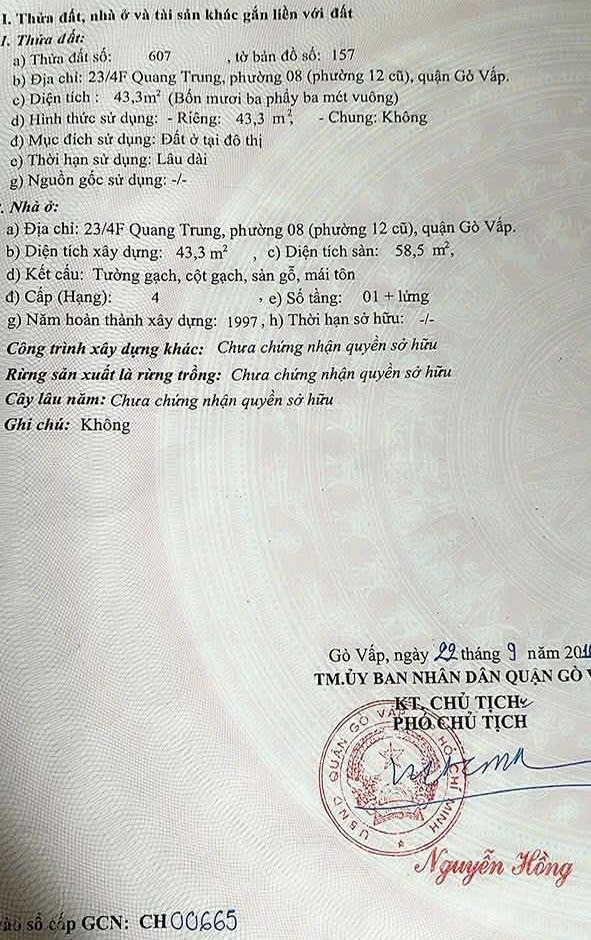 I. Thửa đất, nhà ở và tài sản khác gắn liền với đất
1. Thửa đất:
a) Thửa đất số: 607 , tờ bản đồ số: 157
b) Địa chỉ: 23/4F Quang Trung, phường 08 (phường 12 cũ), quận Gò Vấp.
c) Diện tích : 43,3m² (Bốn mươi ba phẩy ba mét vuông)
d) Hình thức sử dụng: - Riêng: 43,3 m², - Chung: Không
đ) Mục đích sử dụng: Đất ở tại đô thị
e) Thời hạn sử dụng: Lâu dài
g) Nguồn gốc sử dụng: -/-
. Nhà ở:
a) Địa chỉ: 23/4F Quang Trung, phường 08 (phường 12 cũ), quận Gò Vấp.
b) Diện tích xây dựng: 43,3 m² , c) Diện tích sàn: 58,5 m²,
d) Kết cấu: Tường gạch, cột gạch, sàn gỗ, mái tôn
đ) Cấp (Hạng): 4 , e) Số tầng: 01 + lửng
g) Năm hoàn thành xây dựng: 1997 , h) Thời hạn sở hữu: -/-
Công trình xây dựng khác: Chưa chứng nhận quyền sở hữu
Rừng sản xuất là rừng trồng: Chưa chứng nhận quyền sở hữu
Cây lâu năm: Chưa chứng nhận quyền sở hữu
Ghi chú: Không
Gò Vấp, ngày 22 tháng 9 năm 201
TM.ỦY BAN NHÂN DÂN QUẬN GÒ
KT. CHỦ TỊCH
PHÓ CHỦ TỊCH
U B N D QUẬN GÒ VẤP HỒ CHÍ MINH
Nguyễn Hồng
vào sổ cấp GCN: CH 00665